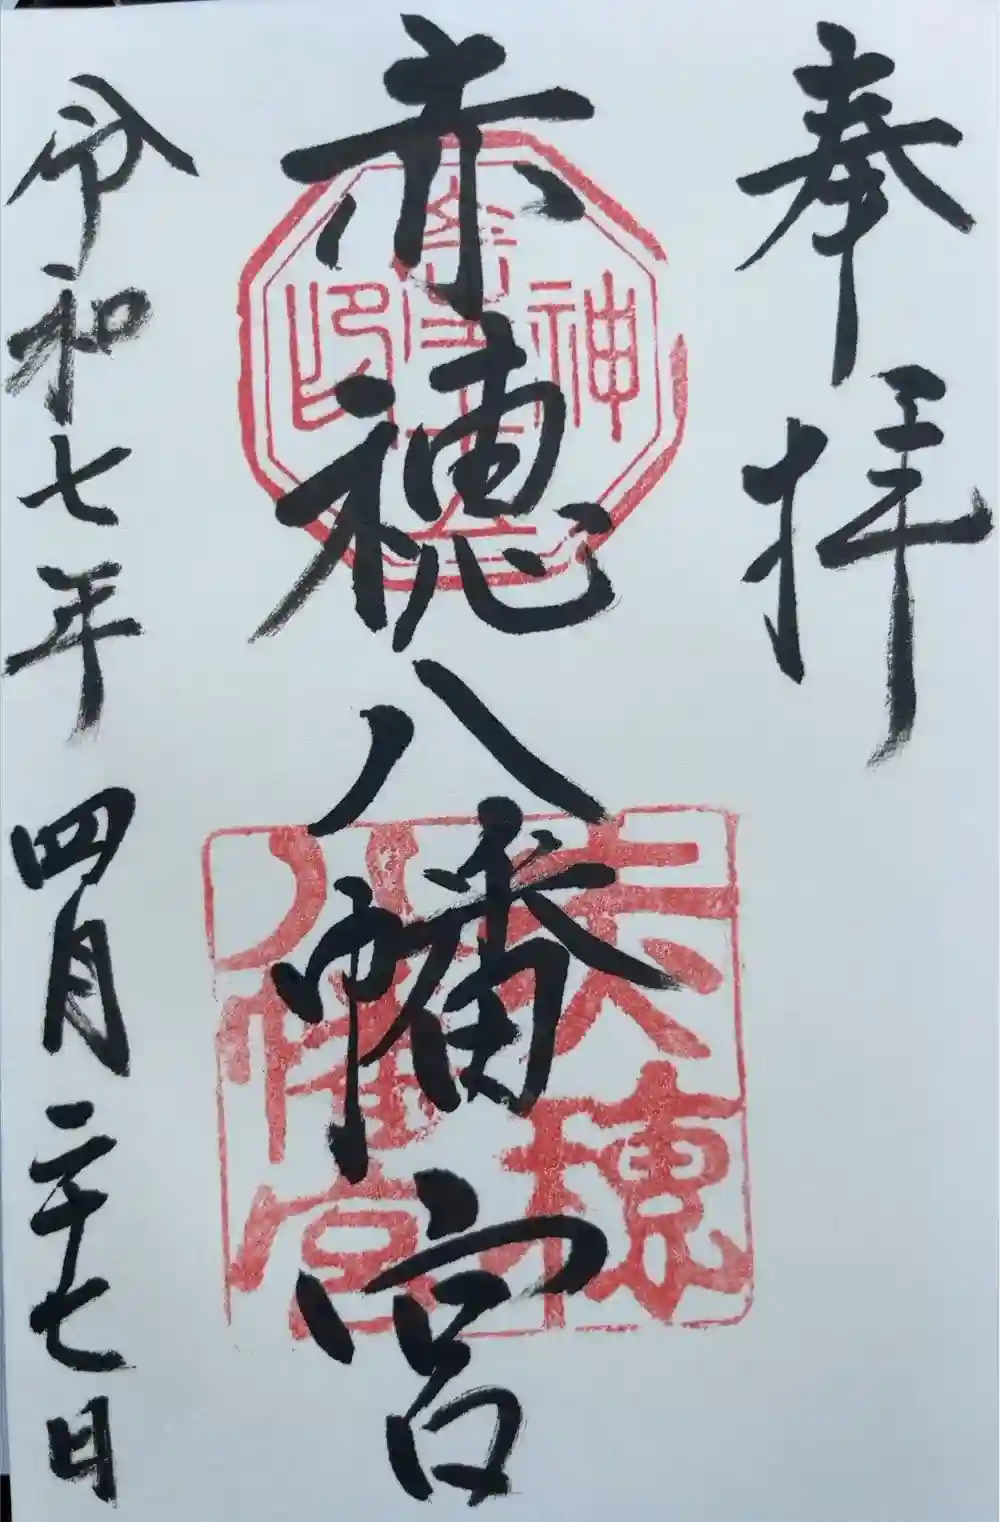 奉拝
赤穂八幡宮
令和七年四月二十七日
赤穂
八幡宮